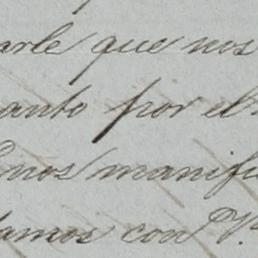 arle que nos
anto por el
mos manifi
tamos con V.